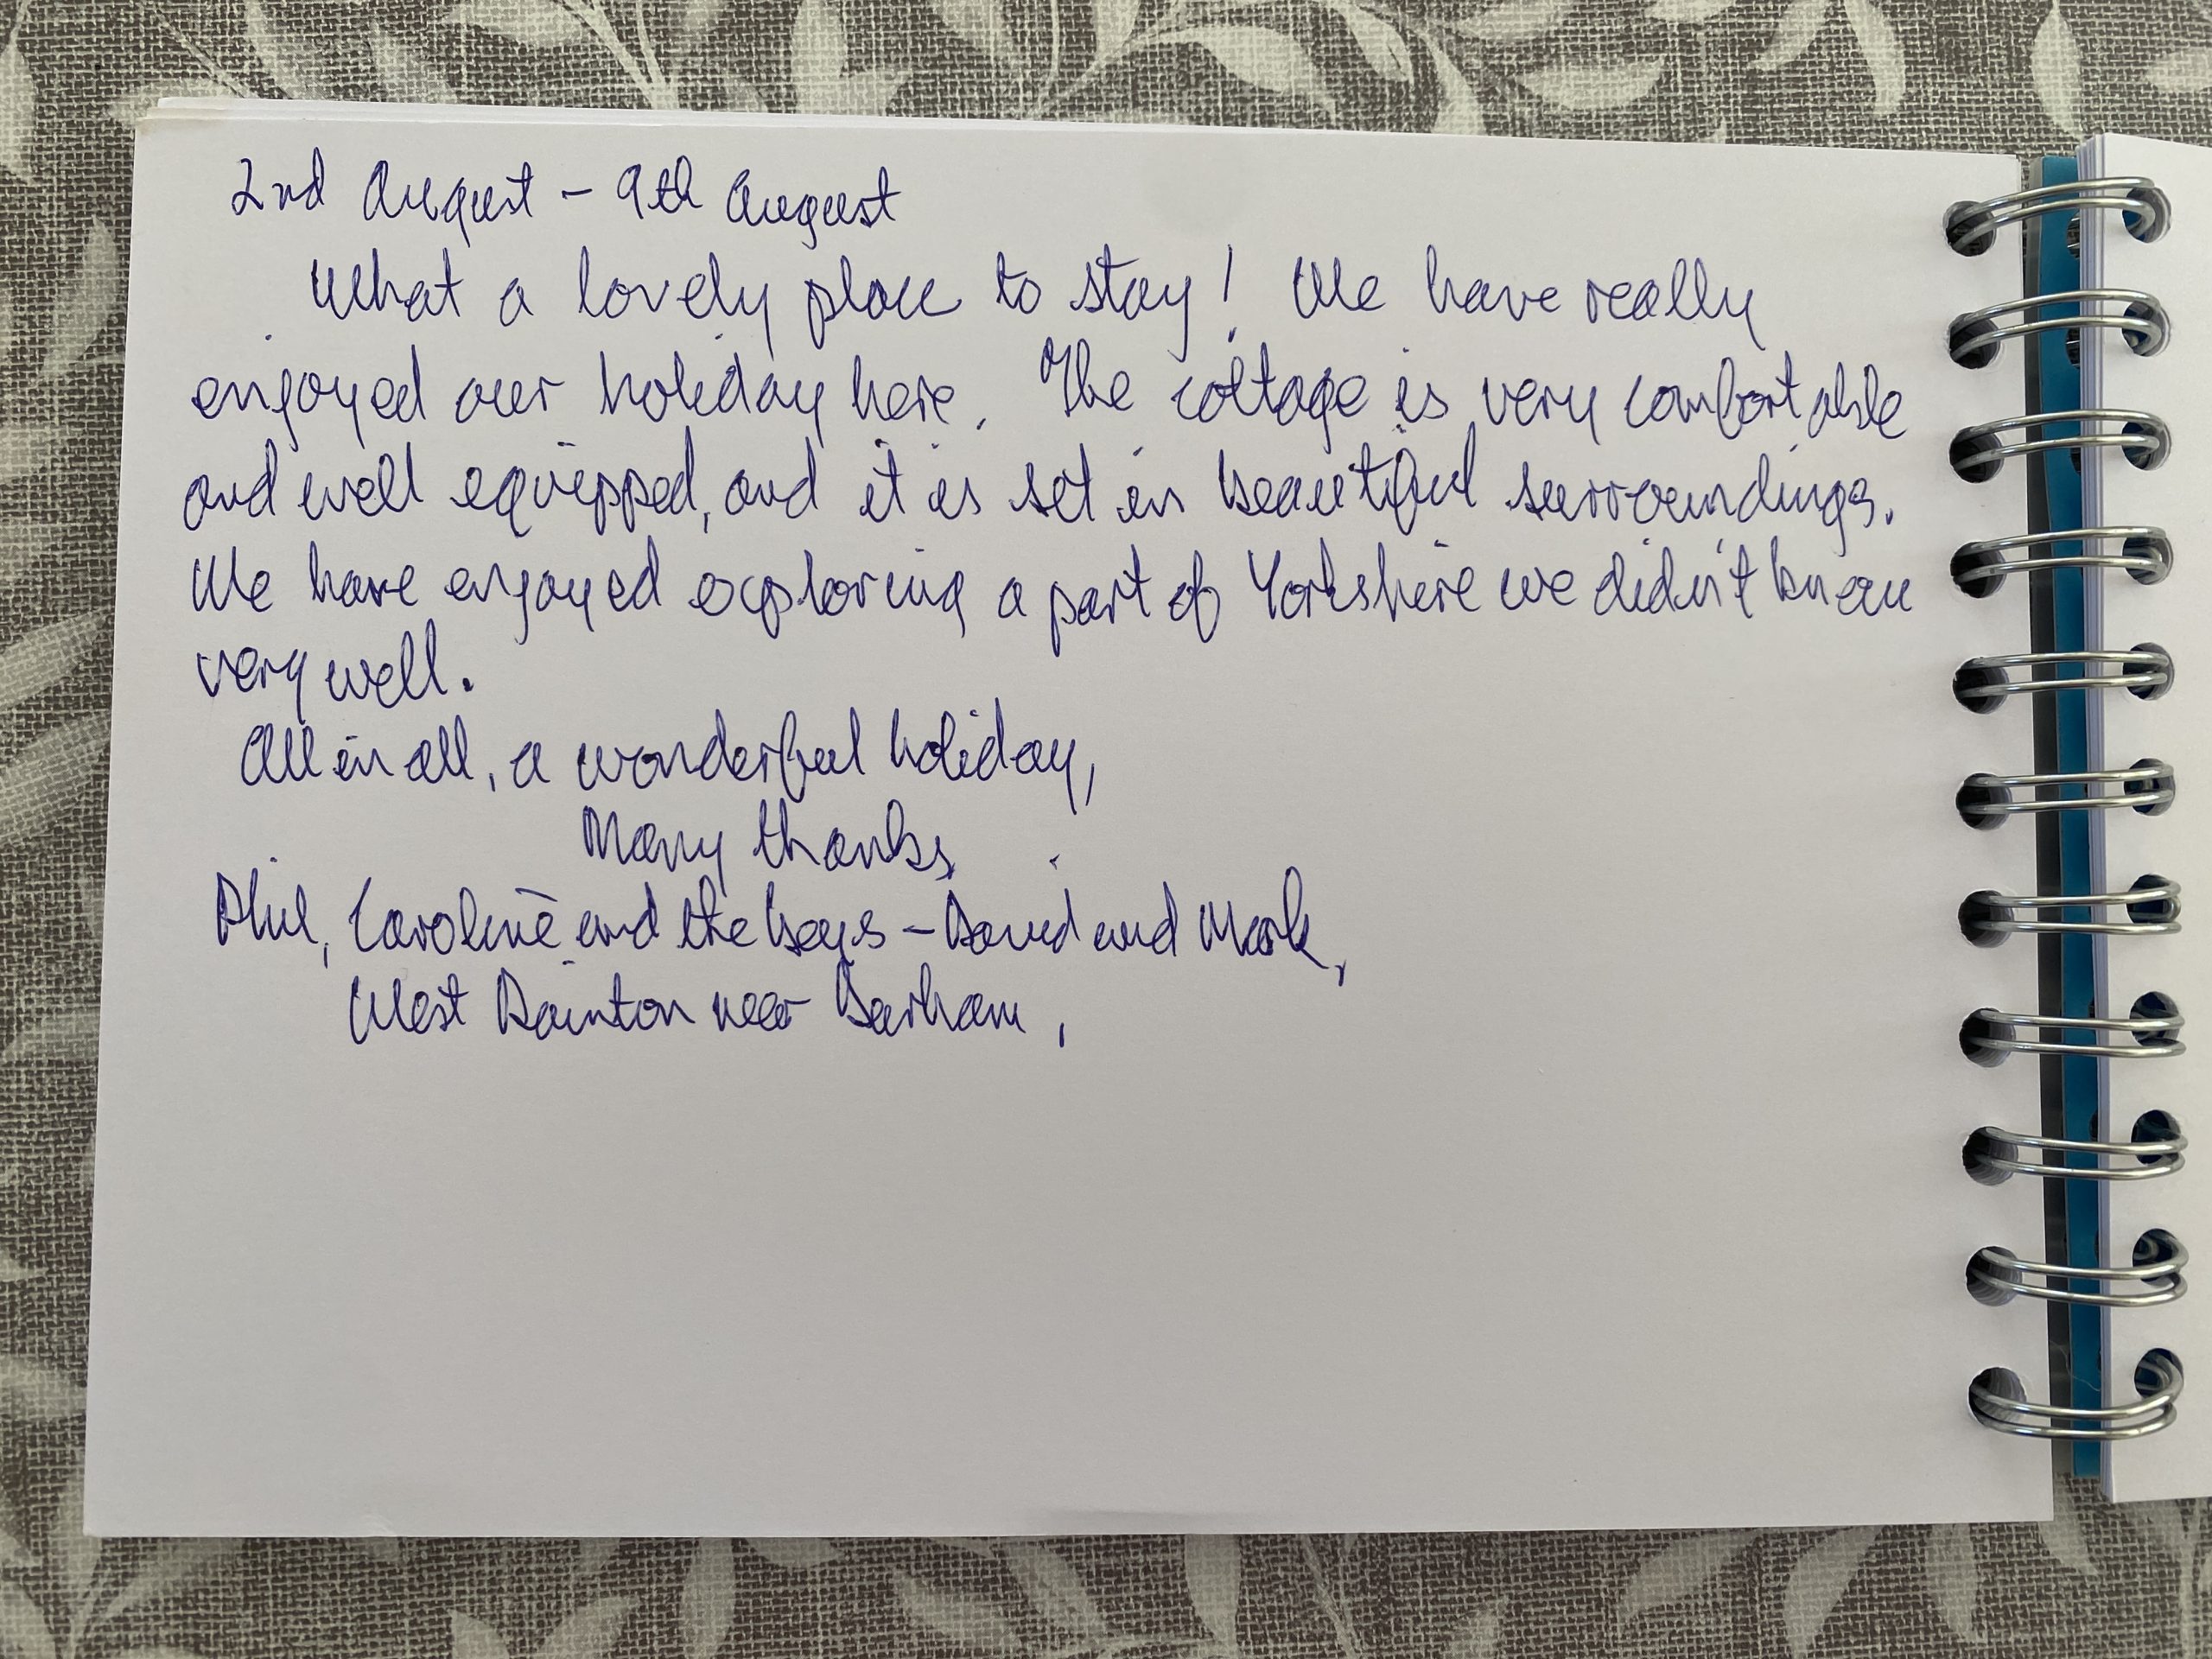 2nd August - 9th August
What a lovely place to stay! We have really
enjoyed our holiday here. The cottage is very comfortable
and well equipped, and it is set in beautiful surroundings.
We have enjoyed exploring a part of Yorkshire we didn't know
very well.
All in all, a wonderful holiday,
Many thanks,
Phil, Caroline and the boys - David and Mark,
West Rainton near Durham,